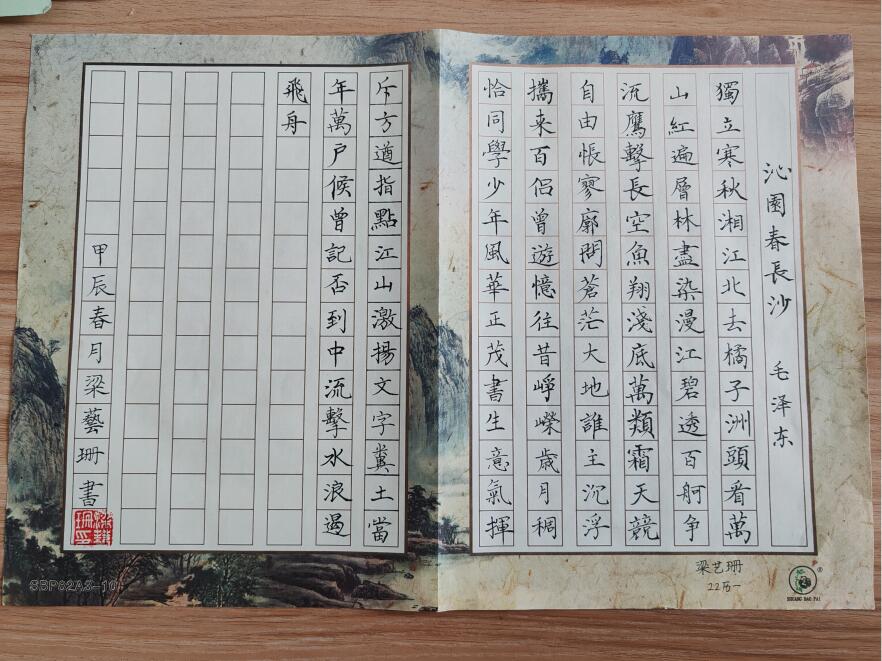 沁園春長沙 毛泽东
獨立寒秋湘江北去橘子洲頭看萬
山紅遍層林盡染漫江碧透百舸争
流鷹擊長空魚翔淺底萬類霜天競
自由悵寥廓問蒼茫大地誰主沉浮
攜来百侣曾遊憶往昔崢嶸歲月稠
恰同學少年風華正茂書生意氣揮
斥方遒指點江山激揚文字糞土當
年萬户候曾記否到中流擊水浪遏
飛舟
甲辰春月梁藝珊書
梁艺珊
SBP82A3-10